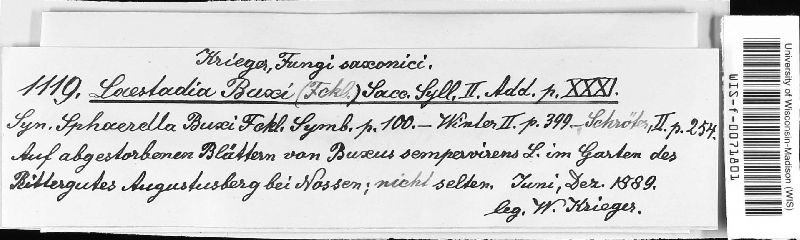 Krieger, Fungi saxonici.
1119. Laestadia Buxi (Fckl.) Sacc. Syll. II. Add. p. XXXI.
Syn. Sphaerella Buxi Fckl. Symb. p. 100. – Winter II. p. 399 – Schröter, II. p. 254.
Auf abgestorbenen Blättern von Buxus sempervirens L. im Garten des
Rittergutes Augustusberg bei Nossen; nicht selten. Juni, Dez. 1889.
leg. W. Krieger.
University of Wisconsin-Madison (WIS)
WIS-f-0071801